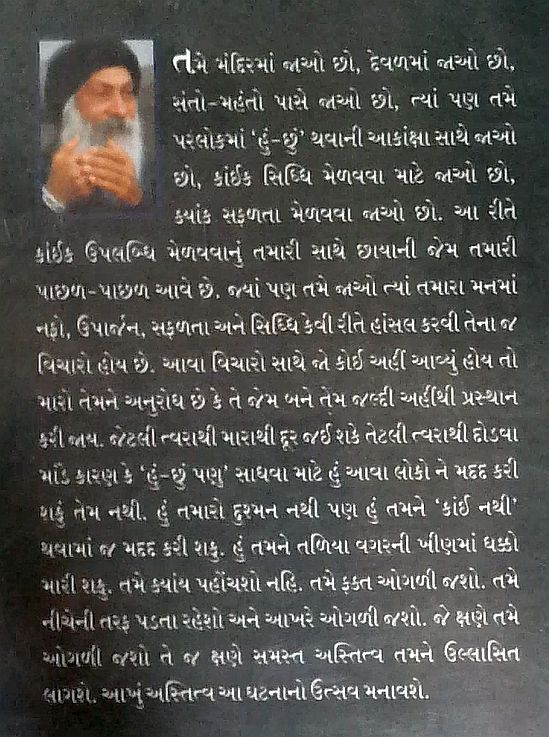 તમે મંદિરમાં જાઓ છો, દેવળમાં જાઓ છો,
સંતો-મહંતો પાસે જાઓ છો, ત્યાં પણ તમે
પરલોકમાં ‘હું-છું’ થવાની આકાંક્ષા સાથે જાઓ
છો, કાંઈક સિધ્ધિ મેળવવા માટે જાઓ છો,
ક્યાંક સફળતા મેળવવા જાઓ છો. આ રીતે
કાંઈક ઉપલબ્ધિ મેળવવાનું તમારી સાથે છાયાની જેમ તમારી
પાછળ-પાછળ આવે છે. જ્યાં પણ તમે જાઓ ત્યાં તમારા મનમાં
નફો, ઉપાર્જન, સફળતા અને સિધ્ધિ કેવી રીતે હાંસલ કરવી તેના જ
વિચારો હોય છે. આવા વિચારો સાથે જો કોઈ અહીં આવ્યું હોય તો
મારો તેમને અનુરોધ છે કે તે જેમ બને તેમ જલ્દી અહીંથી પ્રસ્થાન
કરી જાય. જેટલી ત્વરાથી મારાથી દૂર જઈ શકે તેટલી ત્વરાથી દોડવા
માંડે કારણ કે ‘હું-છું પણુ’ સાધવા માટે હું આવા લોકો ને મદદ કરી
શકું તેમ નથી. હું તમારો દુશ્મન નથી પણ હું તમને ‘કાંઈ નથી’
થવામાં જ મદદ કરી શકુ. હું તમને તળિયા વગરની ખીણમાં ધક્કો
મારી શકુ. તમે ક્યાંય પહોંચશો નહિ. તમે ફક્ત ઓગળી જશો. તમે
નીચેની તરફ પડતા રહેશો અને આખરે ઓગળી જશો. જે ક્ષણે તમે
ઓગળી જશો તે જ ક્ષણે સમસ્ત અસ્તિત્વ તમને ઉલ્લાસિત
લાગશે. આખું અસ્તિત્વ આ ઘટનાનો ઉત્સવ મનાવશે.